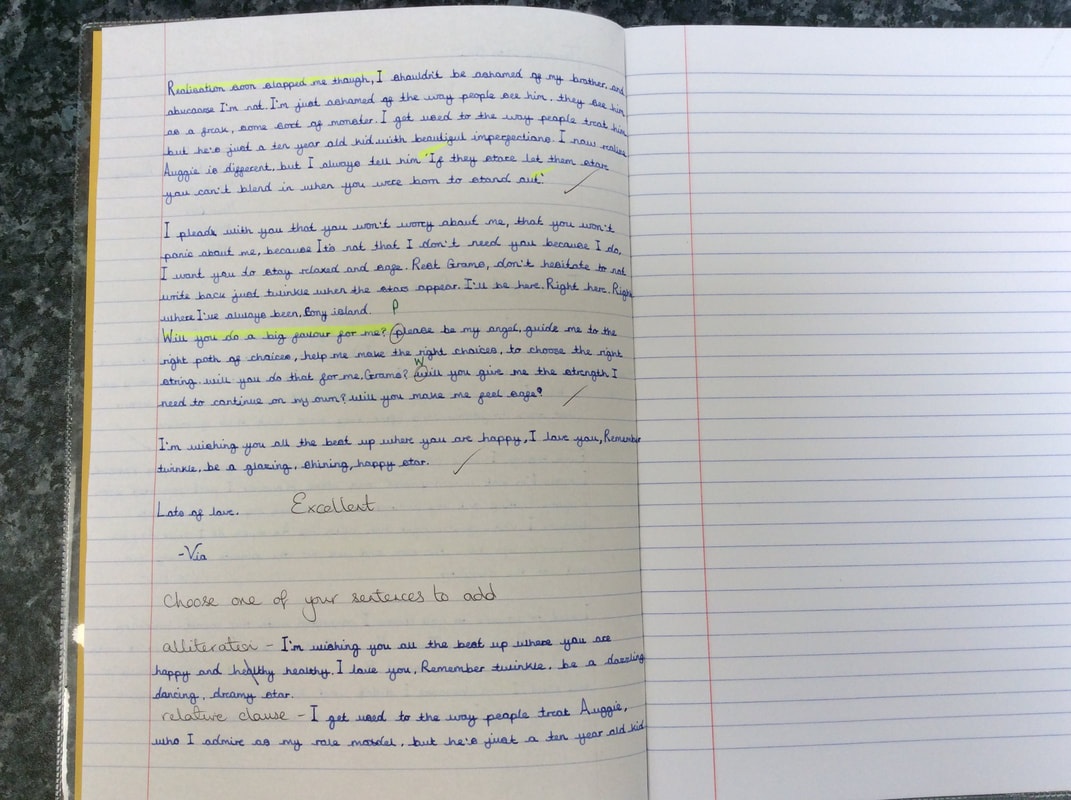 Realisation soon slapped me though, I shouldn't be ashamed of my brother, and
abucaose I'm not. I'm just ashamed of the way people see him, they see him
as a freak, some sort of monster. I get used to the way people treat him
but he's just a ten year old kid with beautiful imperfections. I now realise
Auggie is different, but I always tell him 'If they stare let them stare
you can't blend in when you were born to stand out'.
I plead with you that you won't worry about me, that you won't
panic about me, because It's not that I don't need you because I do,
I want you to stay relaxed and sage. Rest Grams, don't hesitate to not
write back just twinkle when the stars appear. I'll be here. Right here. Right
where I've always been, Cony island. P
Will you do a big favour for me? please be my angel, guide me to the
right path of choices, help me make the right choices, to choose the right
W
string. will you do that for me, Grams? will you give me the strength I
need to continue on my own? will you make me feel sage?
I'm wishing you all the best up where you are happy, I love you, Remember
twinkle, be a glazing, shining, happy star.
Lots of love. Excellent
-Via
Choose one of your sentences to add
alliteration - I'm wishing you all the best up where you are
happy and healthy healthy. I love you, Remember twinkle. be a dazzling
dancing, dreamy star.
relative clause - I get used to the way people treat Auggie,
who I admire as my role model, but he's just a ten year old kid